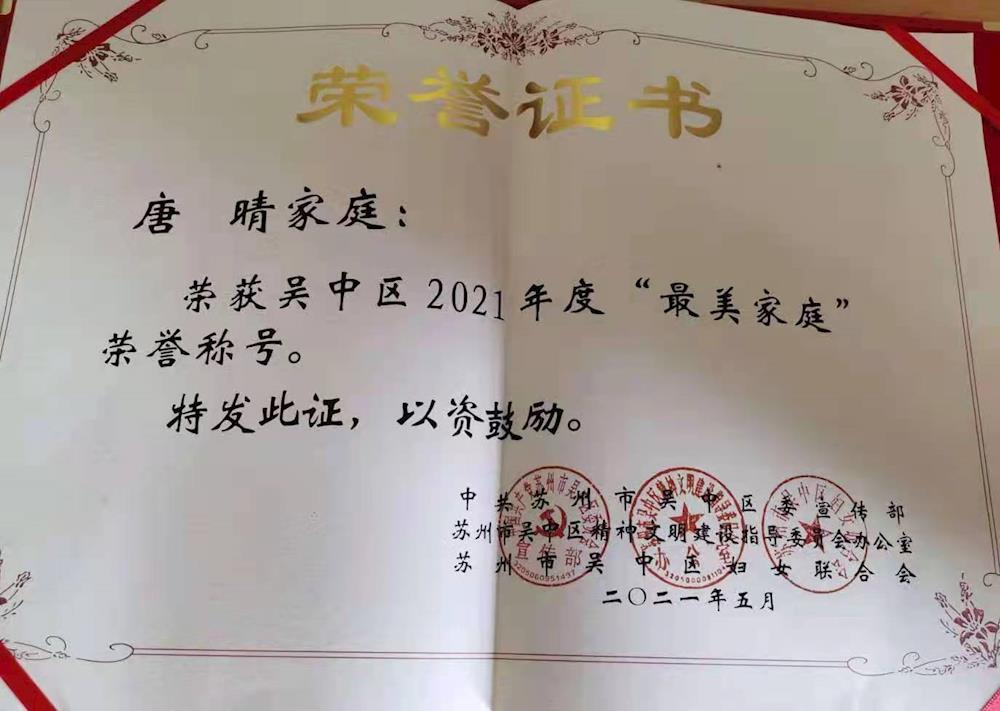 荣誉证书
唐 晴家庭：
荣获吴中区2021年度“最美家庭”
荣誉称号。
特发此证，以资鼓励。
中共苏州市吴中区委宣传部
苏州市吴中区精神文明建设指导委员会办公室
苏州市吴中区妇女联合会
二〇二一年五月
宣传部
办公室